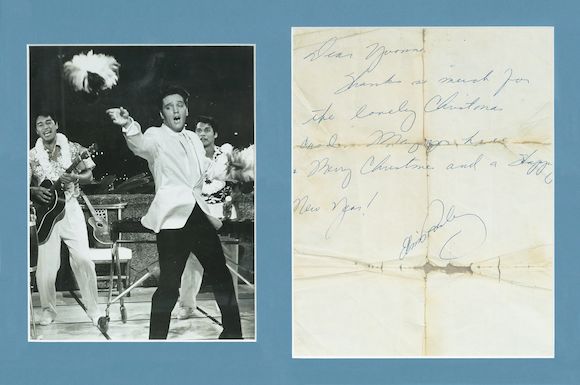 Dear Yvonne,
Thanks so much for
the lovely Christmas
card. May you have
a Merry Christmas and a Happy
New Year!
Elvis Presley